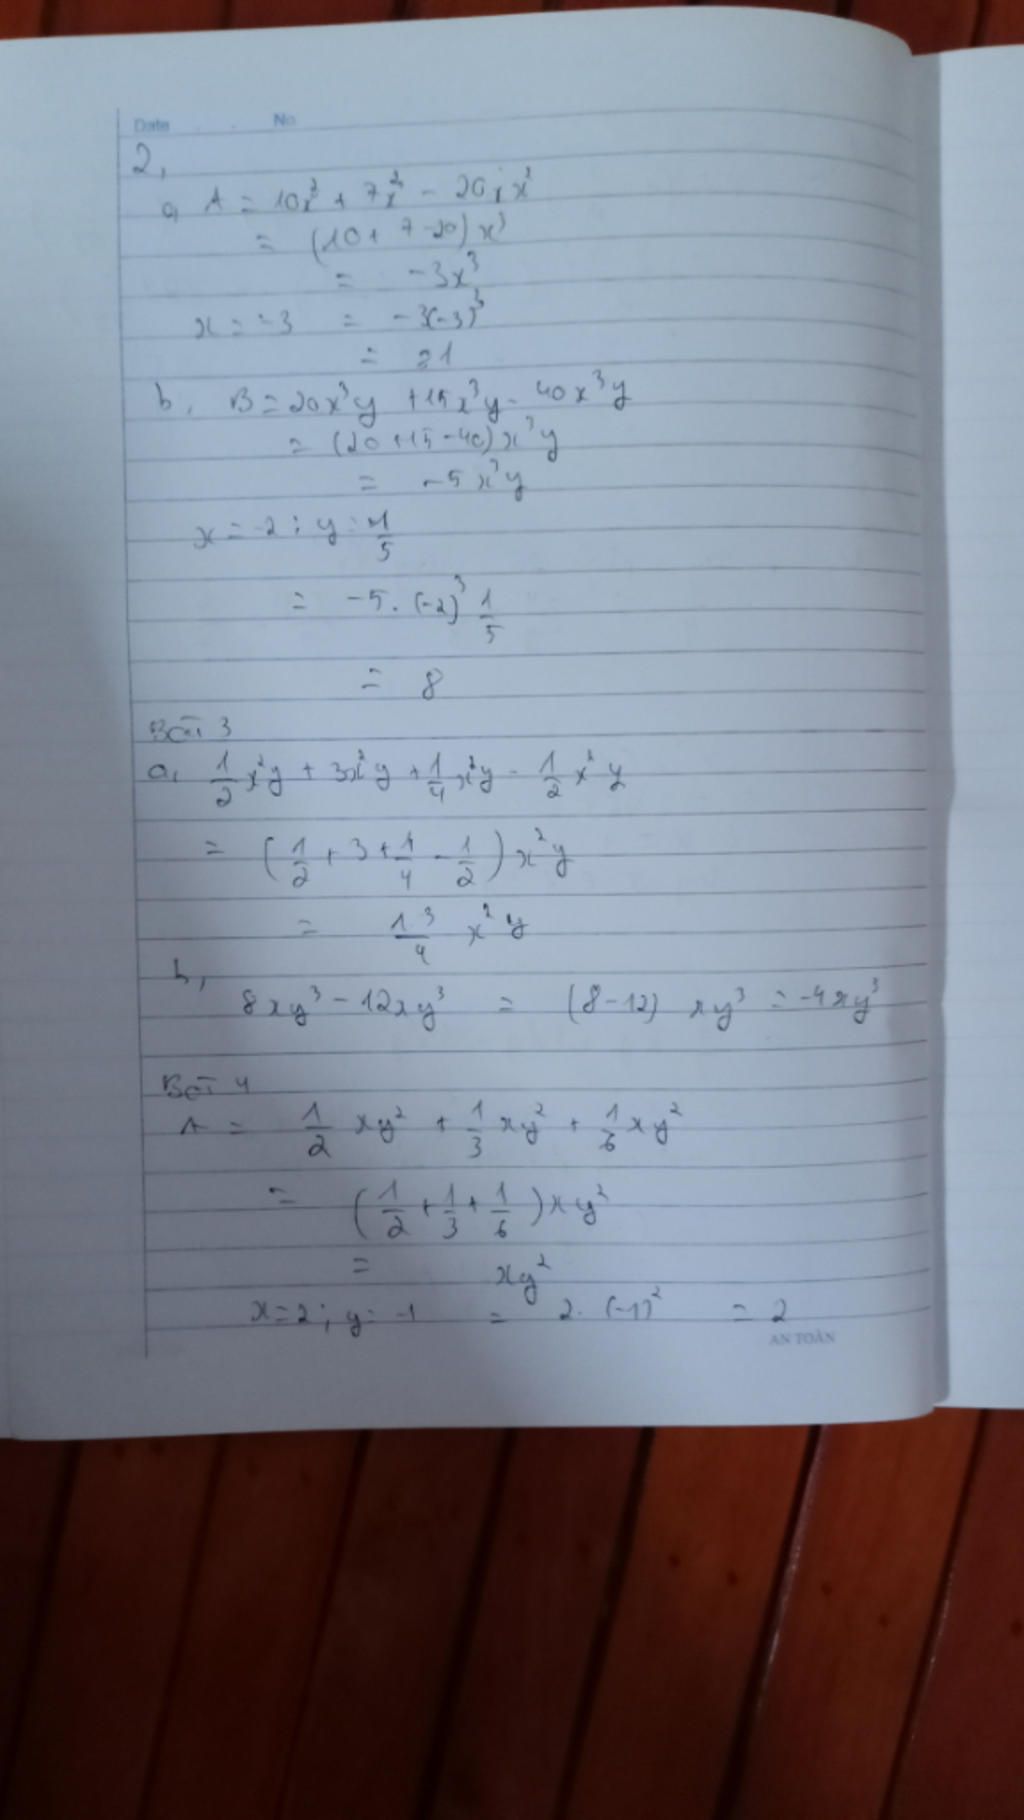 Date No
2,
a, A = 10x³ + 7x³ - 20x³
= (10 + 7 - 20) x³
= -3x³
x = -3 = -3(-3)³
= 81
b, B = 20x³y + 15x³y - 40x³y
= (20 + 15 - 40) x³y
= -5x³y
x = -2 ; y = 1/5
= -5. (-2)³ 1/5
= 8
Bài 3
a, 1/2 x²y + 3x²y + 1/4 x²y - 1/2 x²y
= (1/2 + 3 + 1/4 - 1/2) x²y
= 13/4 x²y
b,
8xy³ - 12xy³ = (8 - 12) xy³ = -4xy³
Bài 4
A = 1/2 xy² + 1/3 xy² + 1/6 xy²
= (1/2 + 1/3 + 1/6) xy²
= xy²
x = 2 ; y = -1 = 2. (-1)² = 2
AN TOÀN